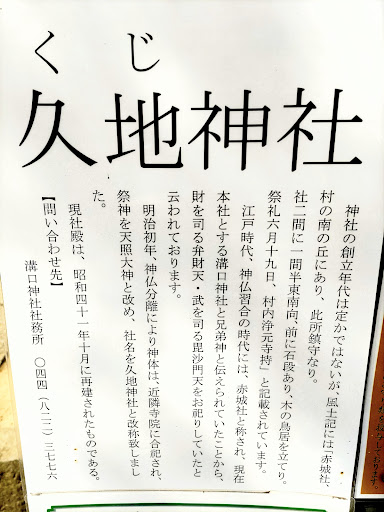 くじ
久地神社
神社の創立年代は定かではないが、風土記には「赤城社、
村の南の丘にあり、此所鎮守なり。
社二間に一間半東南向、前に石段あり、木の鳥居を立てり。
祭礼六月十九日、村内浄元寺持」と記載されています。
江戸時代、神仏習合の時代には、赤城社と称され、現在
本社とする溝口神社と兄弟神と伝えられていたことから、
財を司る弁財天・武を司る毘沙門天をお祀りしていたと
云われております。
明治初年、神仏分離により神体は、近隣寺院に合祀され、
祭神を天照大神と改め、社名を久地神社と改称致しまし
た。
現社殿は、昭和四十一年十月に再建されたものである。
【問い合わせ先】
溝口神社社務所 〇四四(八二二)三七七六